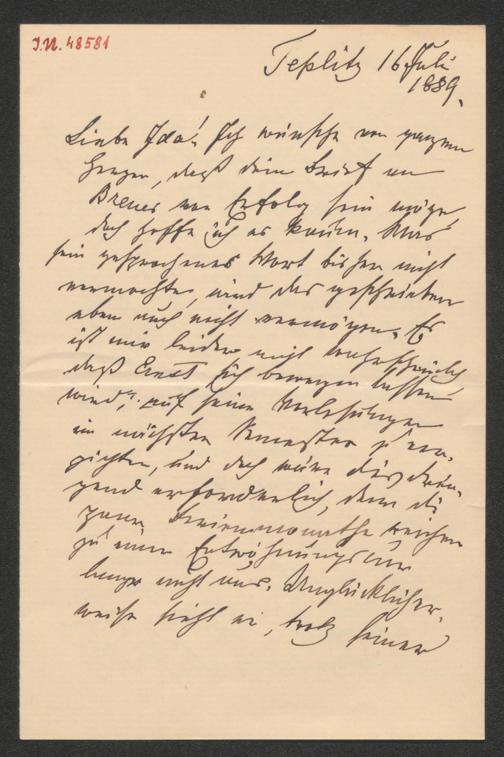 I.N. 48581
Teplitz 16 Juli
1889.
Liebe Ida! Ich wünsche von ganzem
Herzen, daß dein Brief an
Breuer von Erfolg sein möge,
doch hoffe ich es kaum. Was
sein gesprochenes Wort bisher nicht
vermochte, wird das geschriebene
eben auch nicht vermögen. Es
ist mir leider nicht wahrscheinlich
daß Ernst sich bewegen lassen
wird, auf seine Vorlesungen
im nächsten Semester zu ver-
zichten, und doch wäre dies drin-
gend erforderlich, denn die
zwei Ferienmonathe reichen
zu einer Entwöhnungscur
lange nicht aus. Unglücklicher-
weise sieht er, trotz seiner